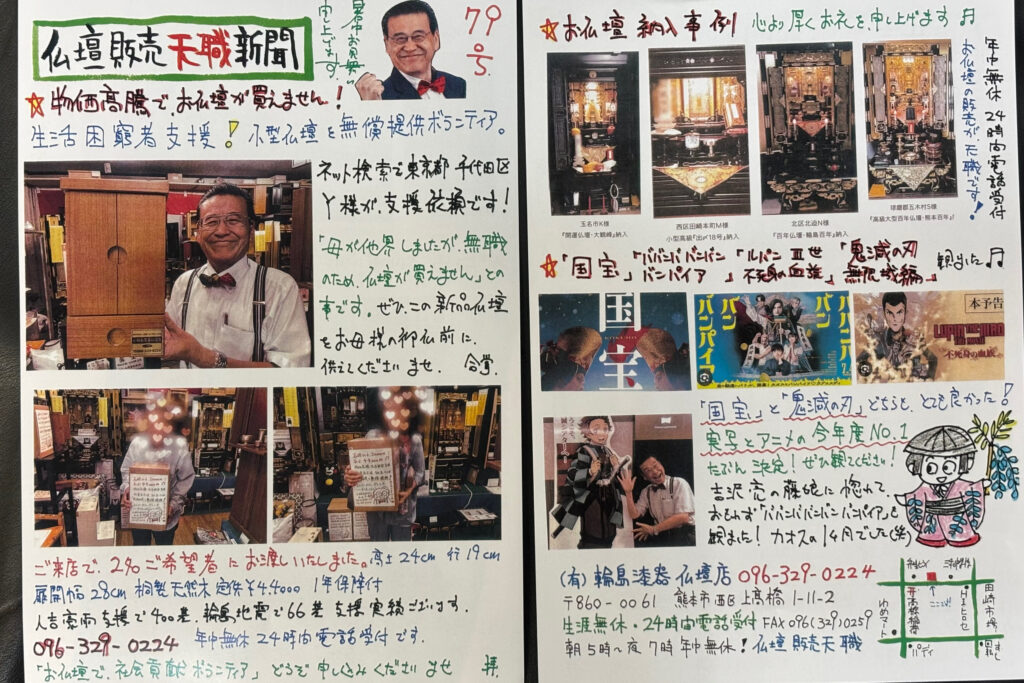 仏壇販売天職新聞
暑中お見舞い
申し上げます
79号
☆物価高騰で、お仏壇が買えません!
生活困窮者支援!小型仏壇を無償提供ボランティア。
ネット検索で東京都千代田区
Y様が、支援依頼です!
「母が他界しましたが、無職
のため、仏壇が買えません」との
事です。ぜひ、この新品仏壇
をお母様の御仏前に、
供えてくださいませ。合掌.
ご来店で、2名ご希望者にお渡しいたしました。高さ24cm 行19cm
扉開幅28cm 桐製天然木 定価¥44,000 1年保障付
人吉豪雨支援で400基、輪島地震で66基支援実績ございます。
096-329-0224 年中無休24時間電話受付です。
「お仏壇で、社会貢献ボランティア」どうぞ申し込みくださいませ
☆お仏壇納入事例 心より厚くお礼を申し上げます♬
年中無休 24時間電話受付
お仏壇の販売が天職です!
玉名市K様
『開運仏壇・大観峰』納入
西区田崎本町M様
小型高級『出〆18号』納入
北区北迫N様
『百年仏壇・輪島百年』納入
球磨郡五木村S様
『高級大型百年仏壇・熊本百年』納入
☆「国宝」「ババンババンバンバンパイア」「ルパンⅢ世 不死身の血族」「鬼滅の刃 無限城編」観ました♬
国宝
ババンババンバンバンパイア
本予告
LUPIN THE IIIRD
不死身の血族
「国宝」と「鬼滅の刃」どちらも、とても良かった!
実写とアニメの今年度NO.1
たぶん決定!ぜひ観てください!
吉沢亮の藤娘に惚れて、
おもわず「ババンババンバンバンパイア」も
観ました!カオスの1ヶ月でした(笑)
(有)輪島漆器仏壇店 096-329-0224
〒860-0061 熊本市西区上高橋1-11-2
生涯無休・24時間電話受付 FAX096(329)0259
朝5時〜夜7時年中無休!仏壇販売天職
ここだよ
田崎市場
ゆめマート